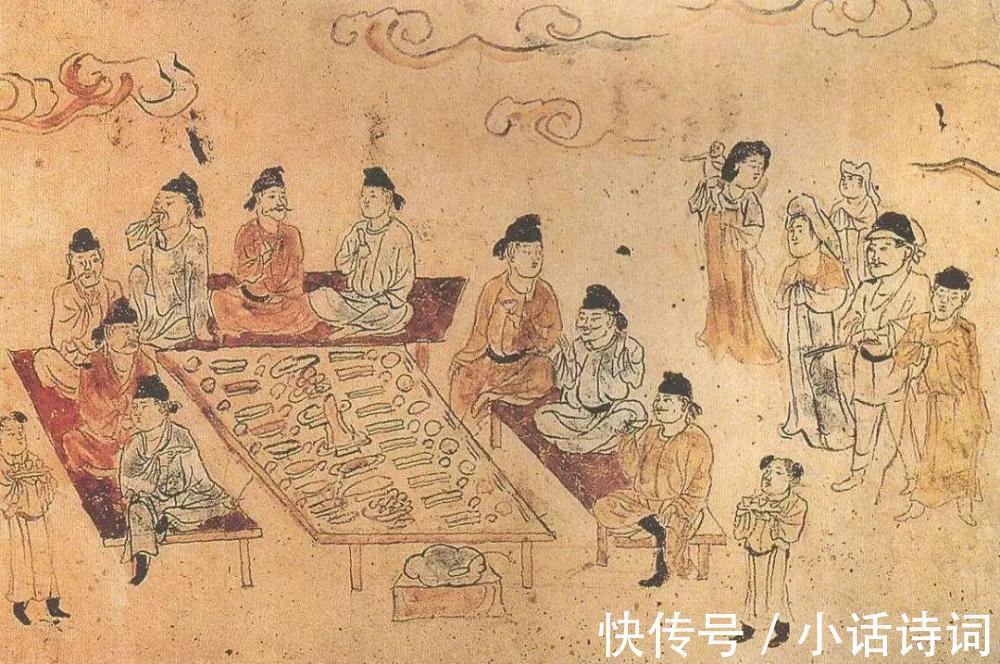 快传号 / 小话诗词